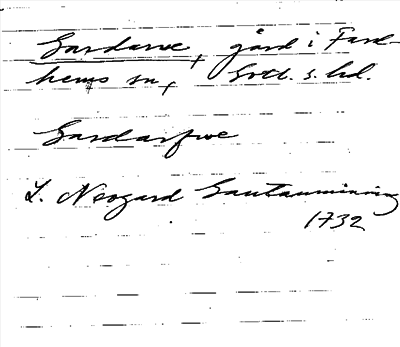 Gardarve, gård i Fard-
hems sn, Gotl. s. hd.
Gardarfwe
L. Neogard Gautauminning
1732